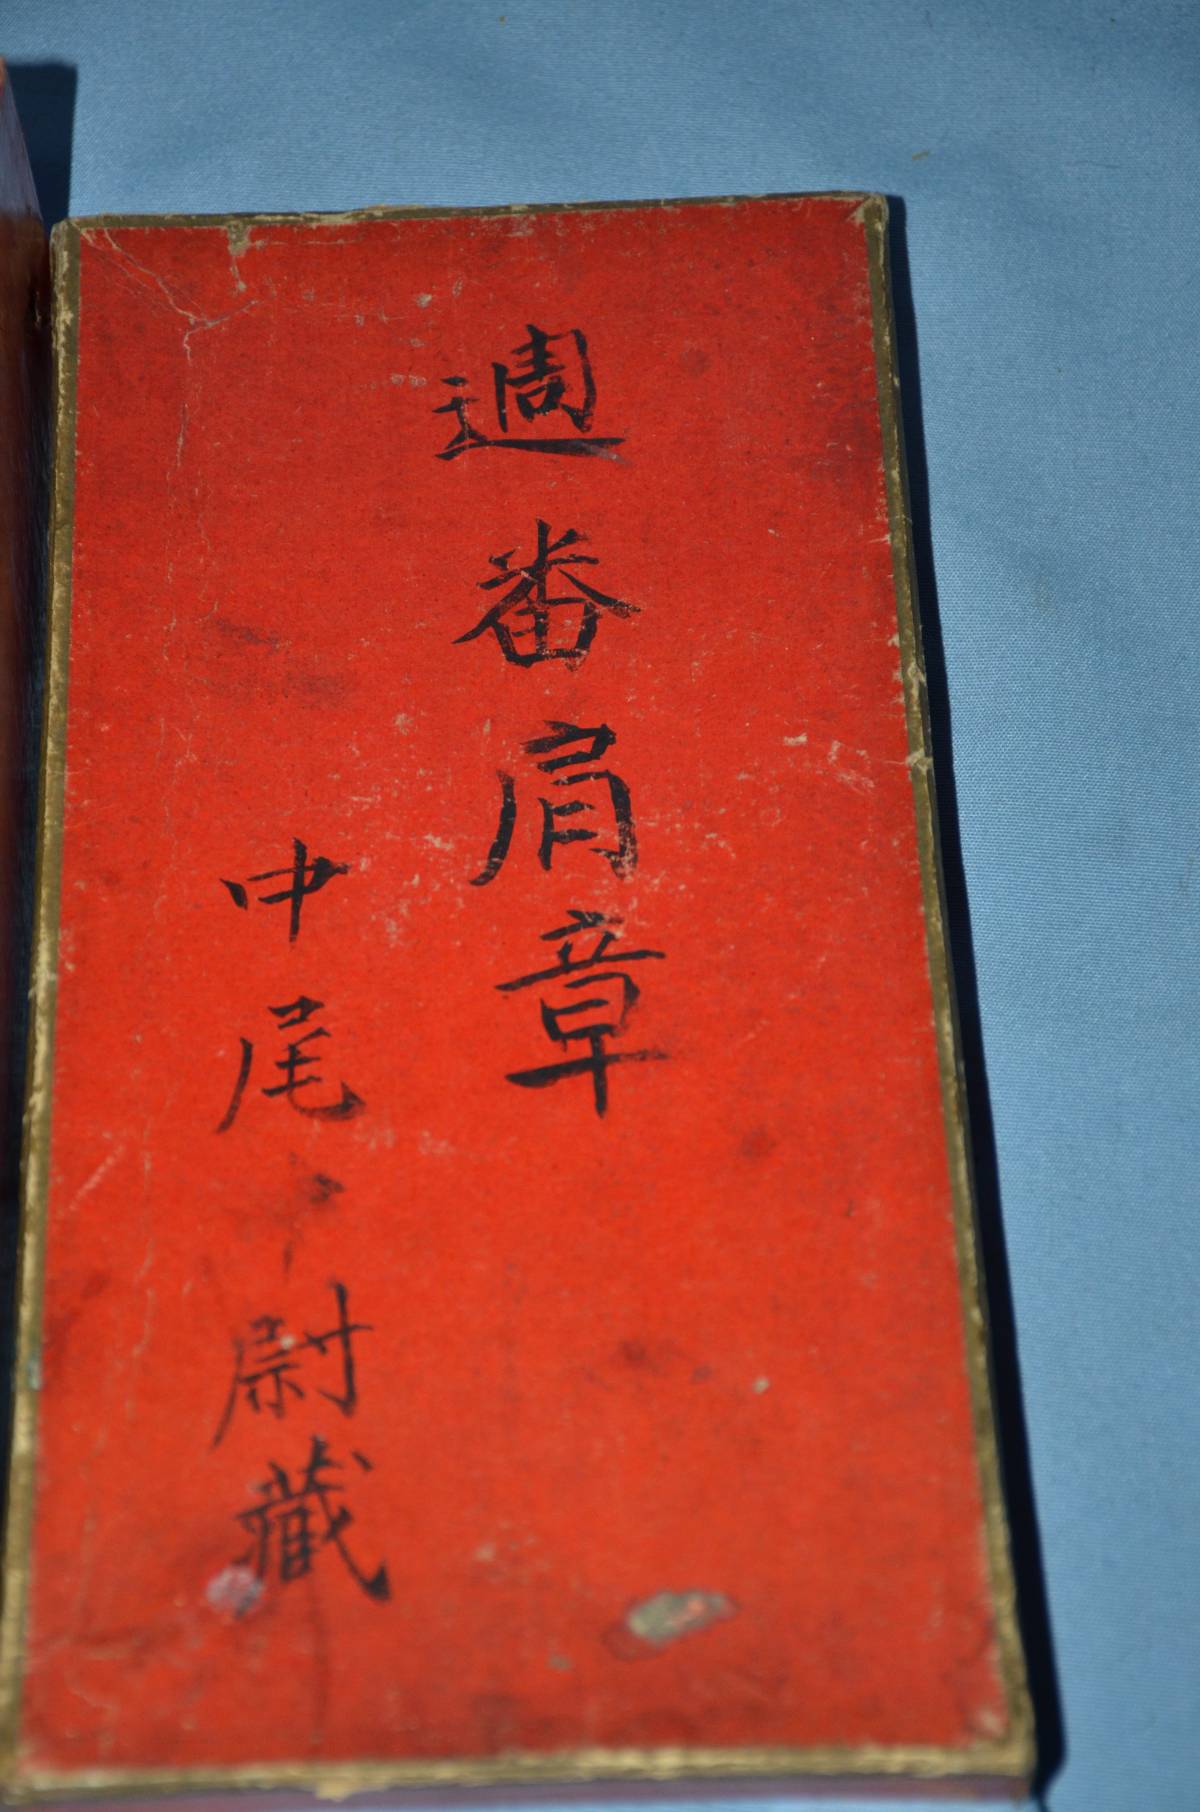 週番肩章
中尾 尉藏